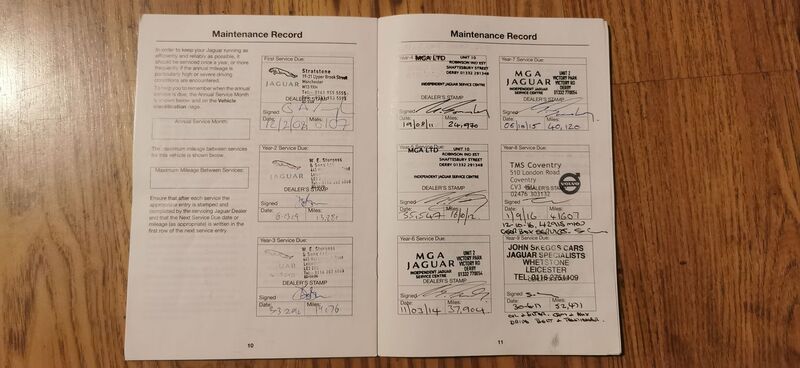 Maintenance Record
In order to keep your Jaguar running as
efficiently and reliably as possible, it
should be serviced once a year, or more
frequently if the annual mileage is
particularly high or severe driving
conditions are encountered.
To help you to remember when the annual
service is due, the Annual Service Month
is shown below and on the Vehicle
Identification page.
Annual Service Month:
The maximum mileage between services
for this vehicle is shown below.
Maximum Mileage Between Services:
Ensure that after each service the
appropriate entry is stamped and
completed by the servicing Jaguar Dealer
and that the Next Service Due date or
mileage (as appropriate) is written in the
first row of the next service entry.
First Service Due:
Stratstone
19-21 Upper Brook Street
Manchester
JAGUAR
DEALER'S STAMP
Signed
Date: Miles:
Year-2 Service Due:
W. E. Sturgess
& Sons
DEALER'S STAMP
Signed
Date: Miles:
Year-3 Service Due:
W. E. Sturgess
& Sons
DEALER'S STAMP
Signed
Date: Miles:
10
Maintenance Record
Year-4
MGA LTD UNIT 10
ROBINSON IND EST
SHAFTESBURY STREET
DERBY 01332 291348
INDEPENDENT JAGUAR SERVICE CENTRE
DEALER'S STAMP
Signed
Date: Miles:
19/08/11 24,970
MGA LTD UNIT 10
ROBINSON IND EST
SHAFTESBURY STREET
DERBY 01332 291348
INDEPENDENT JAGUAR SERVICE CENTRE
DEALER'S STAMP
Signed
Date: Miles:
Year-6 Service Due:
MGA
JAGUAR
INDEPENDENT JAGUAR
SERVICE CENTRE
UNIT 2
VICTORY PARK
VICTORY RD
DERBY
01332 770054
DEALER'S STAMP
Signed
Date: Miles:
11/03/14 37,904
Year-7 Service Due:
MGA
JAGUAR
INDEPENDENT JAGUAR
SERVICE CENTRE
UNIT 2
VICTORY PARK
VICTORY RD
DERBY
01332 770054
DEALER'S STAMP
Signed
Date: Miles:
06/10/15 40,120
Year-8 Service Due:
TMS Coventry
510 London Road
Coventry
CV3
02476 303132
VOLVO
DEALER'S STAMP
Signed
Date: Miles:
1/9/16 41607
Year-9 Service Due:
JOHN SKEGGS CARS
JAGUAR SPECIALISTS
WHETSTONE
LEICESTER
TEL: 0116 2751409
DEALER'S STAMP
Signed
Date: Miles:
52,471
11